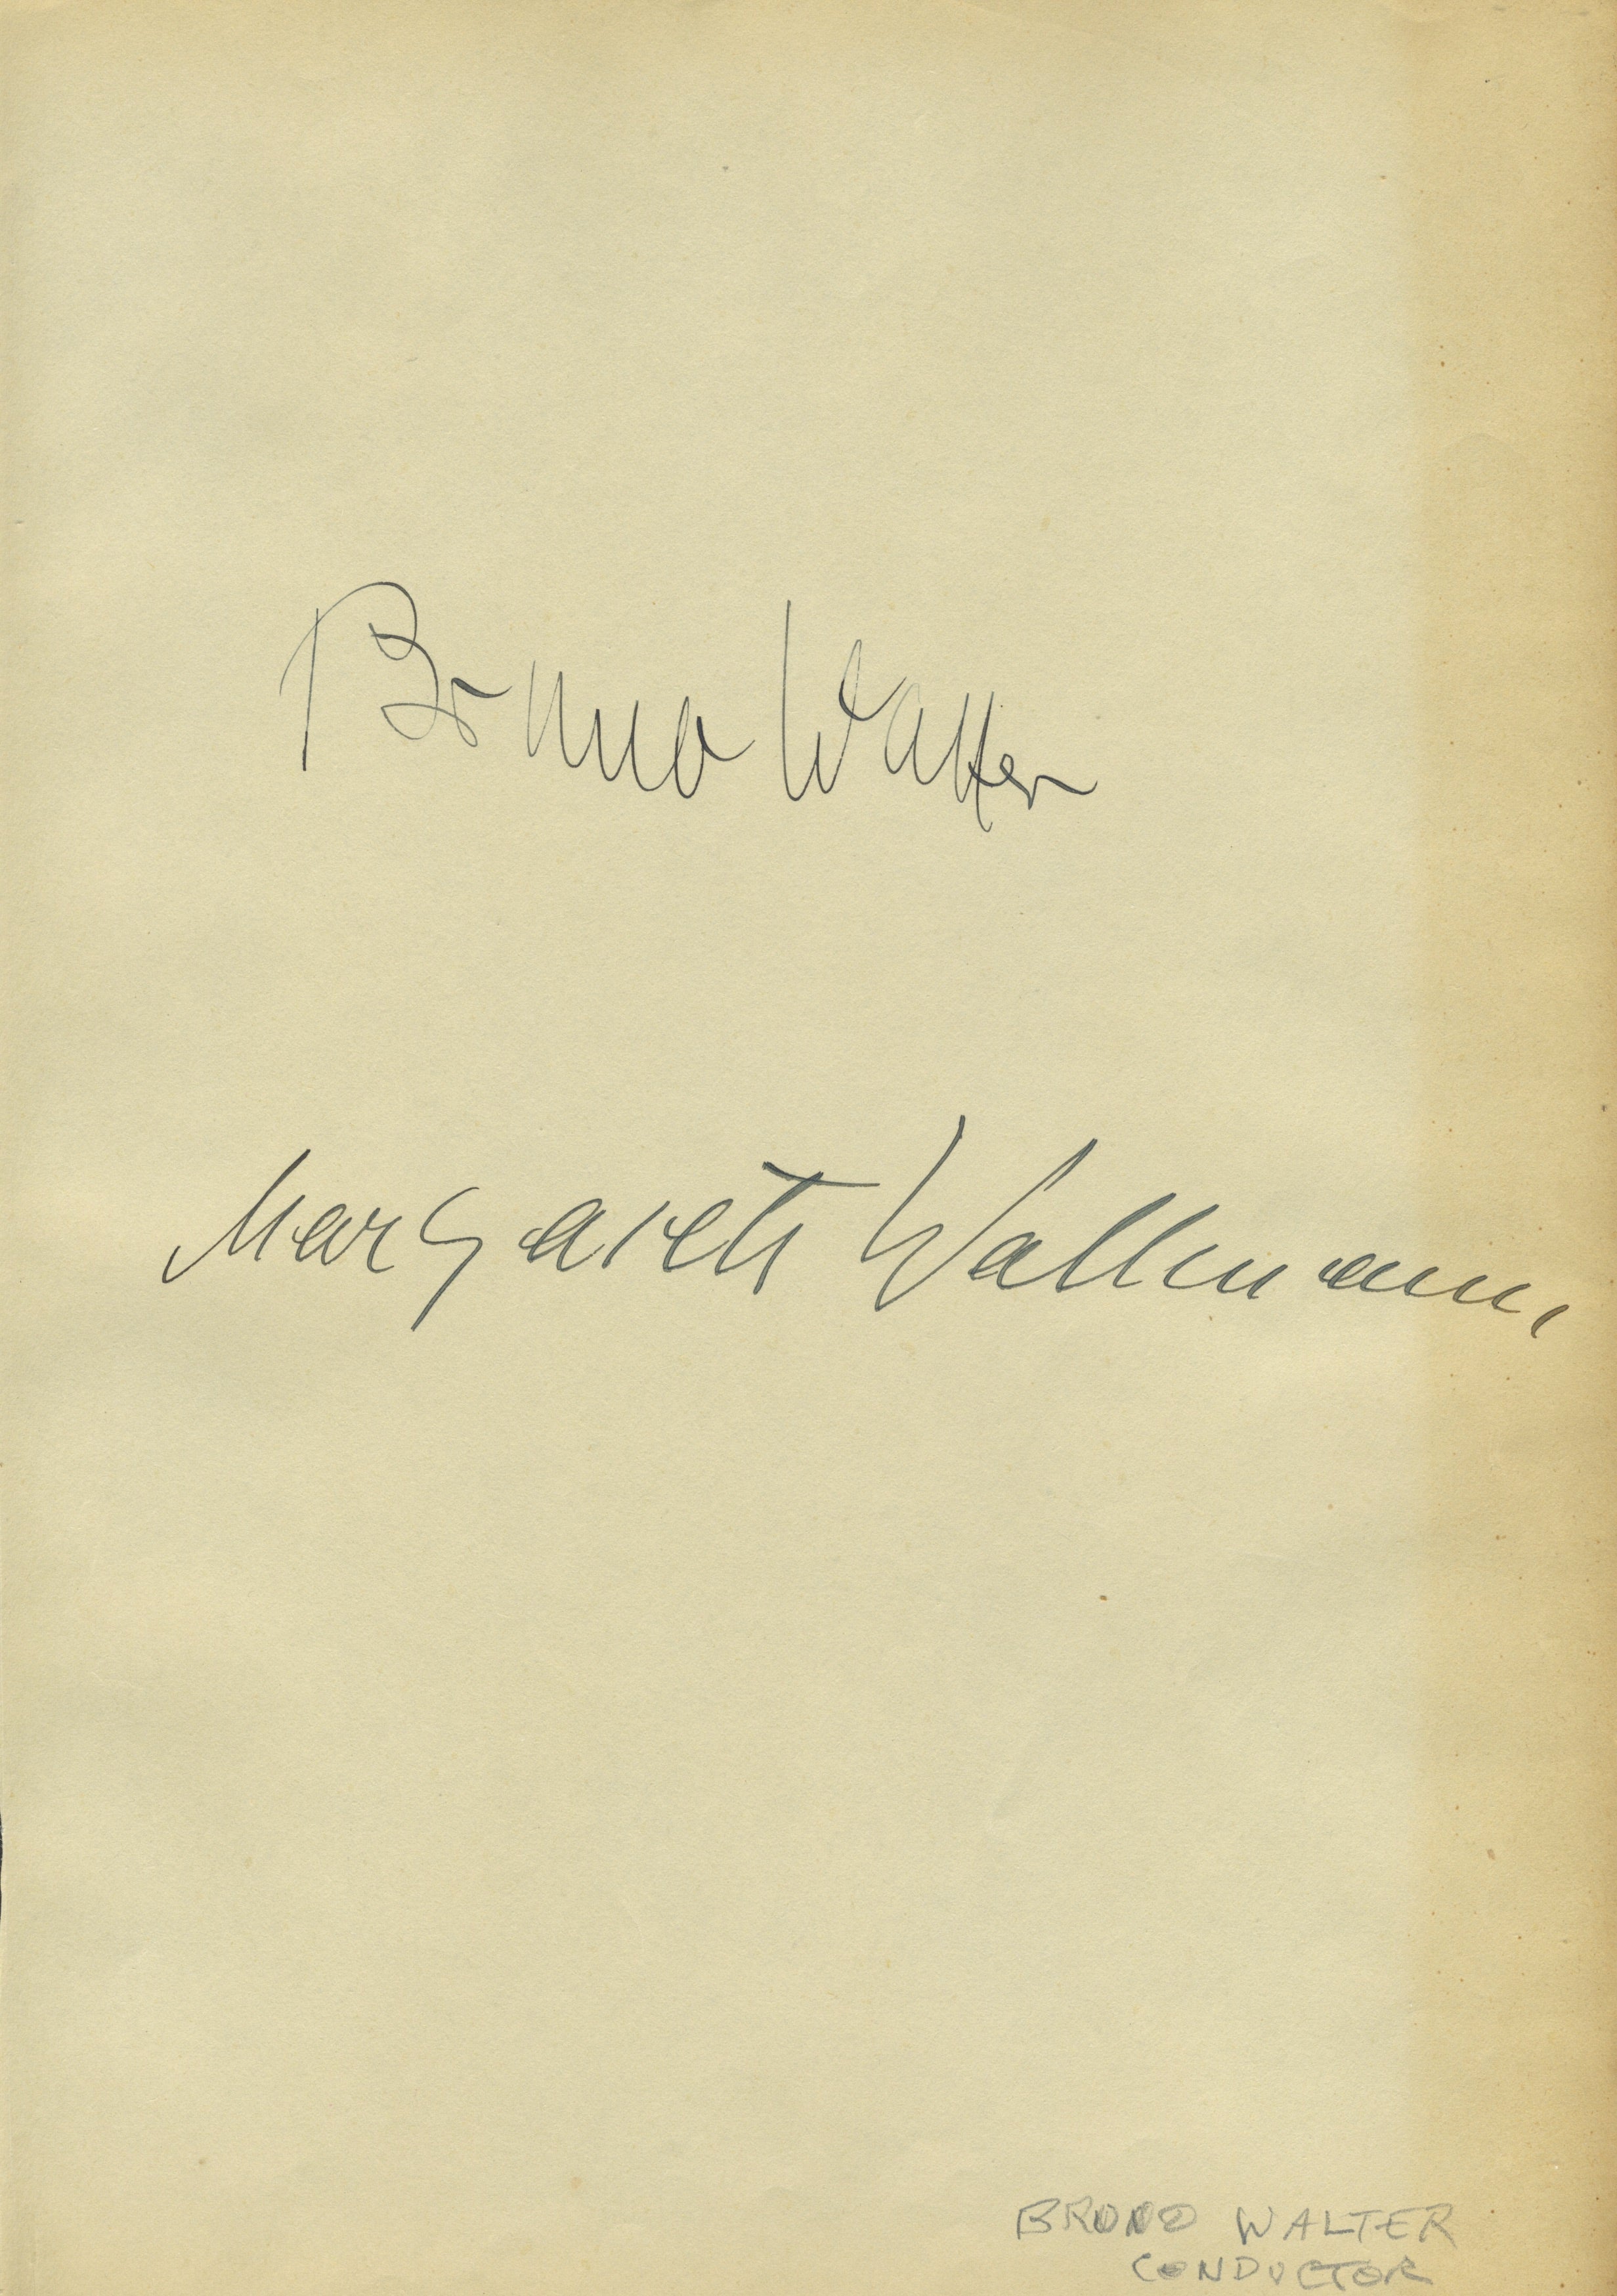 Bruno Walter
Margareth Wallmann,
BRUNO WALTER
CONDUCTOR